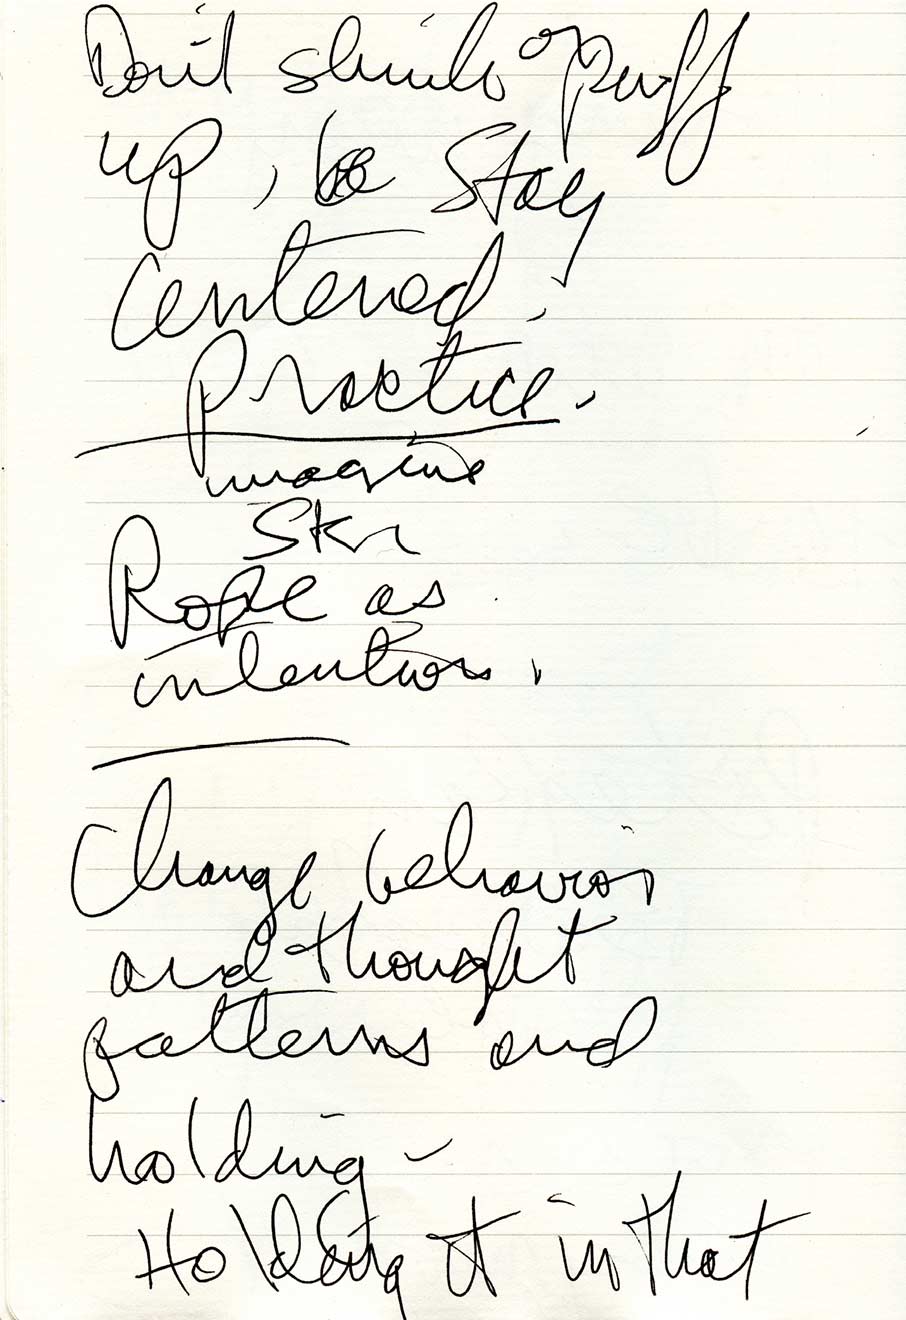 Don't shrink or puff
up, be Stay
Centered.
Practice.
imagine
Ski
Rope as
intention.
Change behavior
and thought
patterns and
holding -
Holding it in that